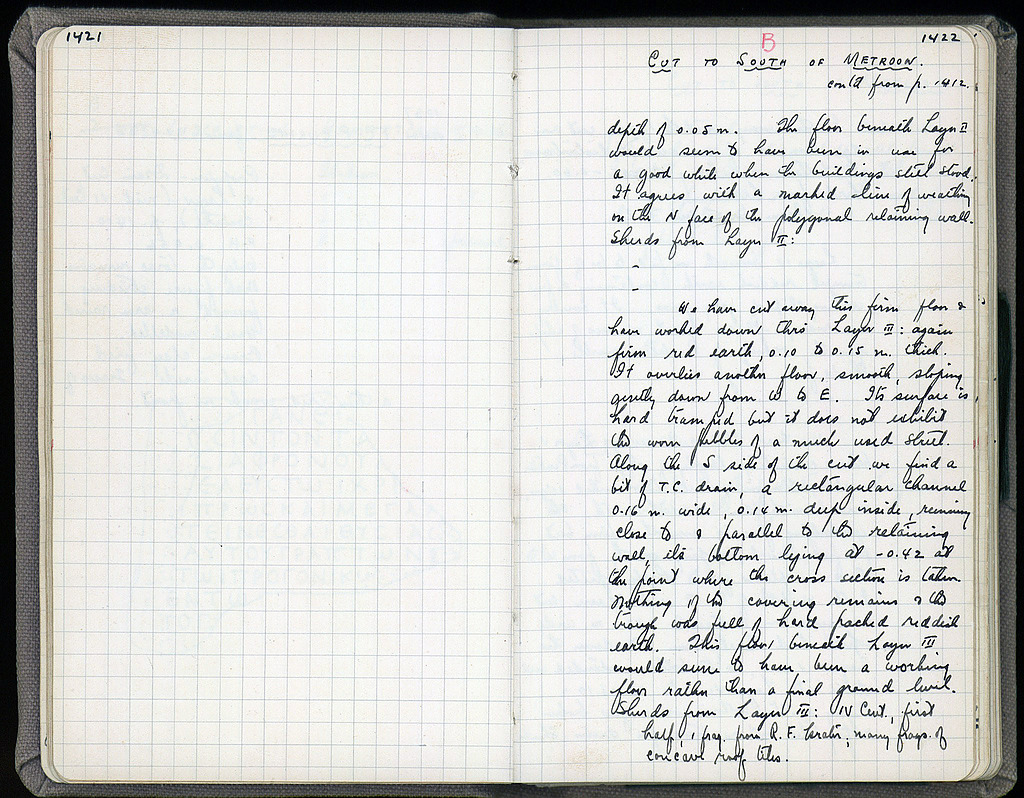 1421
1422
B
CUT TO SOUTH OF METROON.
cont'd from p. 1412.
depth of 0.05 m. The floor beneath Layer II
would seem to have been in use for
a good while when the buildings still stood.
It agrees with a marked line of weathering
on the N face of the polygonal retaining wall.
Sherds from Layer II:
-
-
We have cut away this firm floor &
have worked down thro' Layer III: again
firm red earth, 0.10 to 0.15 m. thick.
It overlies another floor, smooth, sloping
gently down from W to E. Its surface is
hard tramped but it does not exhibit
the worn pebbles of a much used street.
Along the S side of the cut we find a
bit of T.C. drain, a rectangular channel
0.16 m. wide, 0.14 m. deep inside, running
close to & parallel to the retaining
wall, its bottom lying at -0.42 at
the point where the cross section is taken.
Nothing of the covering remains & the
trough was full of hard packed reddish
earth. This floor beneath Layer III
would seem to have been a working
floor rather than a final ground level.
Sherds from Layer III: IV Cent., first
half, 1 frag. from R.F. krater, many frags. of
concave roof tiles.